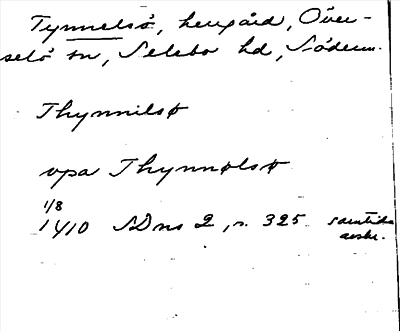 Tynnelsö, herrgård, Över-
selö sn, Selebo hd, Söderm.
Thynnilsø
vpa Thynnølsø
1/8
1410 SDns 2, s. 325 samtida
avskr.